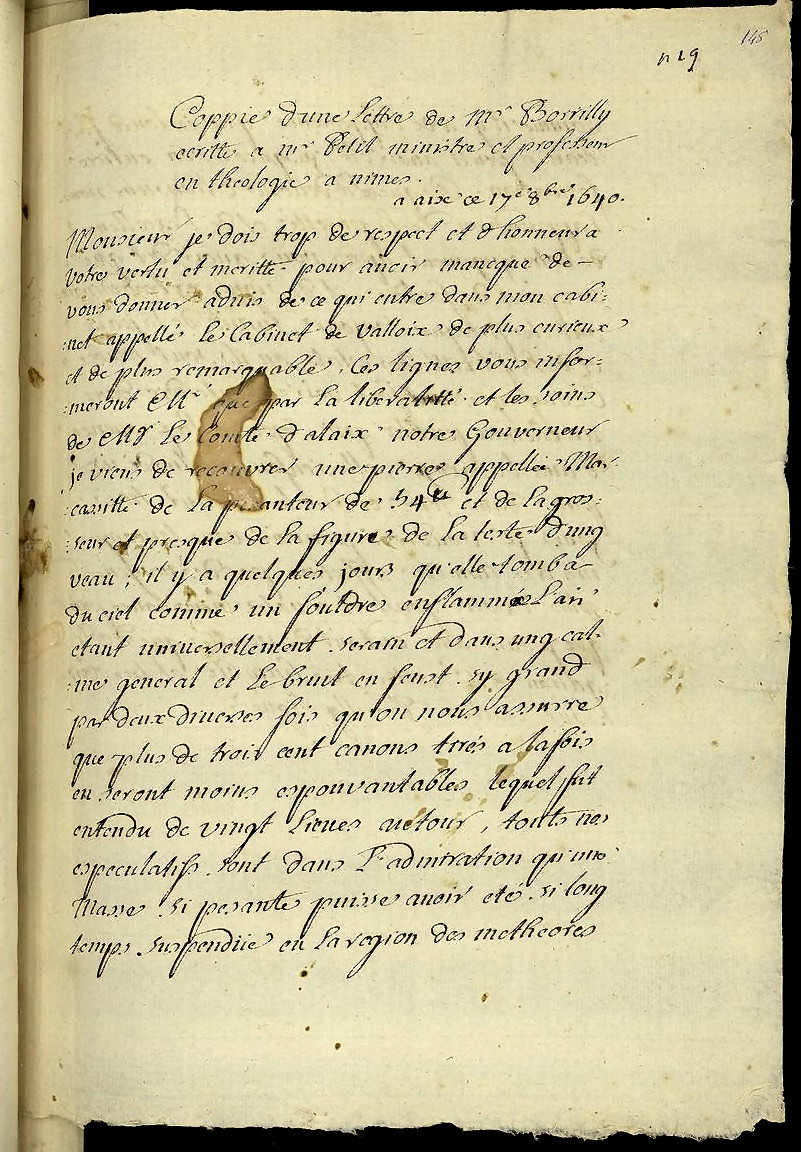 148
n 19
Coppie dune lettre de Mr Borrilly
ecritte a mr Petit ministre et professeur
en theologie a nimes.
a aix ce 17e 8bre 1640.
Monsieur je dois trop de respect et dhonneur a
votre vertu et meritte pour auoir mancque de –
vous donner aduis de ce qui entre dans mon cabi:
:net appellé Le Cabinet de Valloix de plus curieux
et de plus remarquable, Ces lignes vous infor:
:meront Mr que par La liberalitté et les soins
de Mgr Le Comte dalaix notre Gouverneur
je viens de recouvrer une pierre appellée Mar:
:cassitte de La pesanteur de 54 lt et de la gros:
:seur et presque de la figure de la teste dung
veau; il y a quelques jours qu'elle tomba
du ciel comme un foutdre enflamme L'air
etant universellement serain et dans ung cal:
:me general et Le bruit en feust sy grand
par deux diverses fois qu'on nous assurre
que plus de trois cent canons tirés a la fois
en seront moins espouvantables lequel fut
entendu de vingt Lieues autour, touts nos
especulatifs sont dans L'admiration qu'une
Masse si pesante puisse auoir eté si long
temps suspendüe en La region des metheores